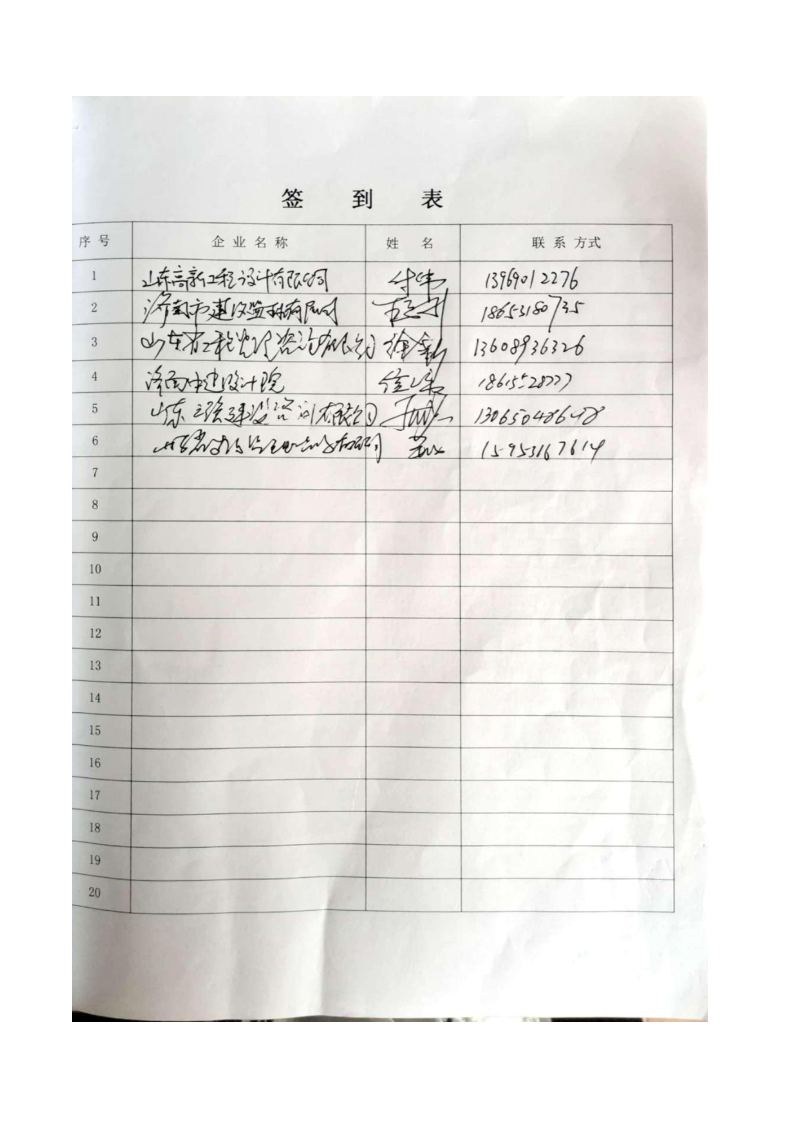 签 到 表
序号 企业名称 姓 名 联系方式
1 山东高新工程设计有限公司 付伟 13969012276
2 济南市建设监理有限公司 18653180735
3 山东省工程监理咨询有限公司 13608936326
4 济南中建设计院 18615528777
5 山东 建设咨询有限公司 13065048648
6 有限公司 15953167614
7
8
9
10
11
12
13
14
15
16
17
18
19
20